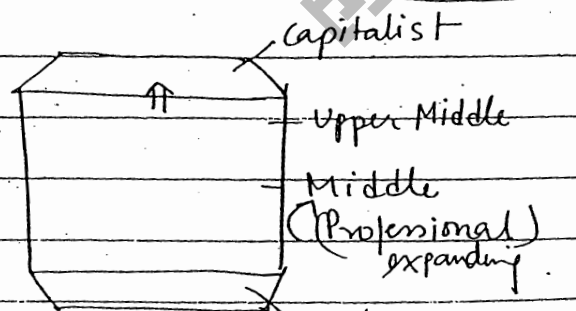 Capitalist
Upper Middle
Middle
(Professional)
expanding